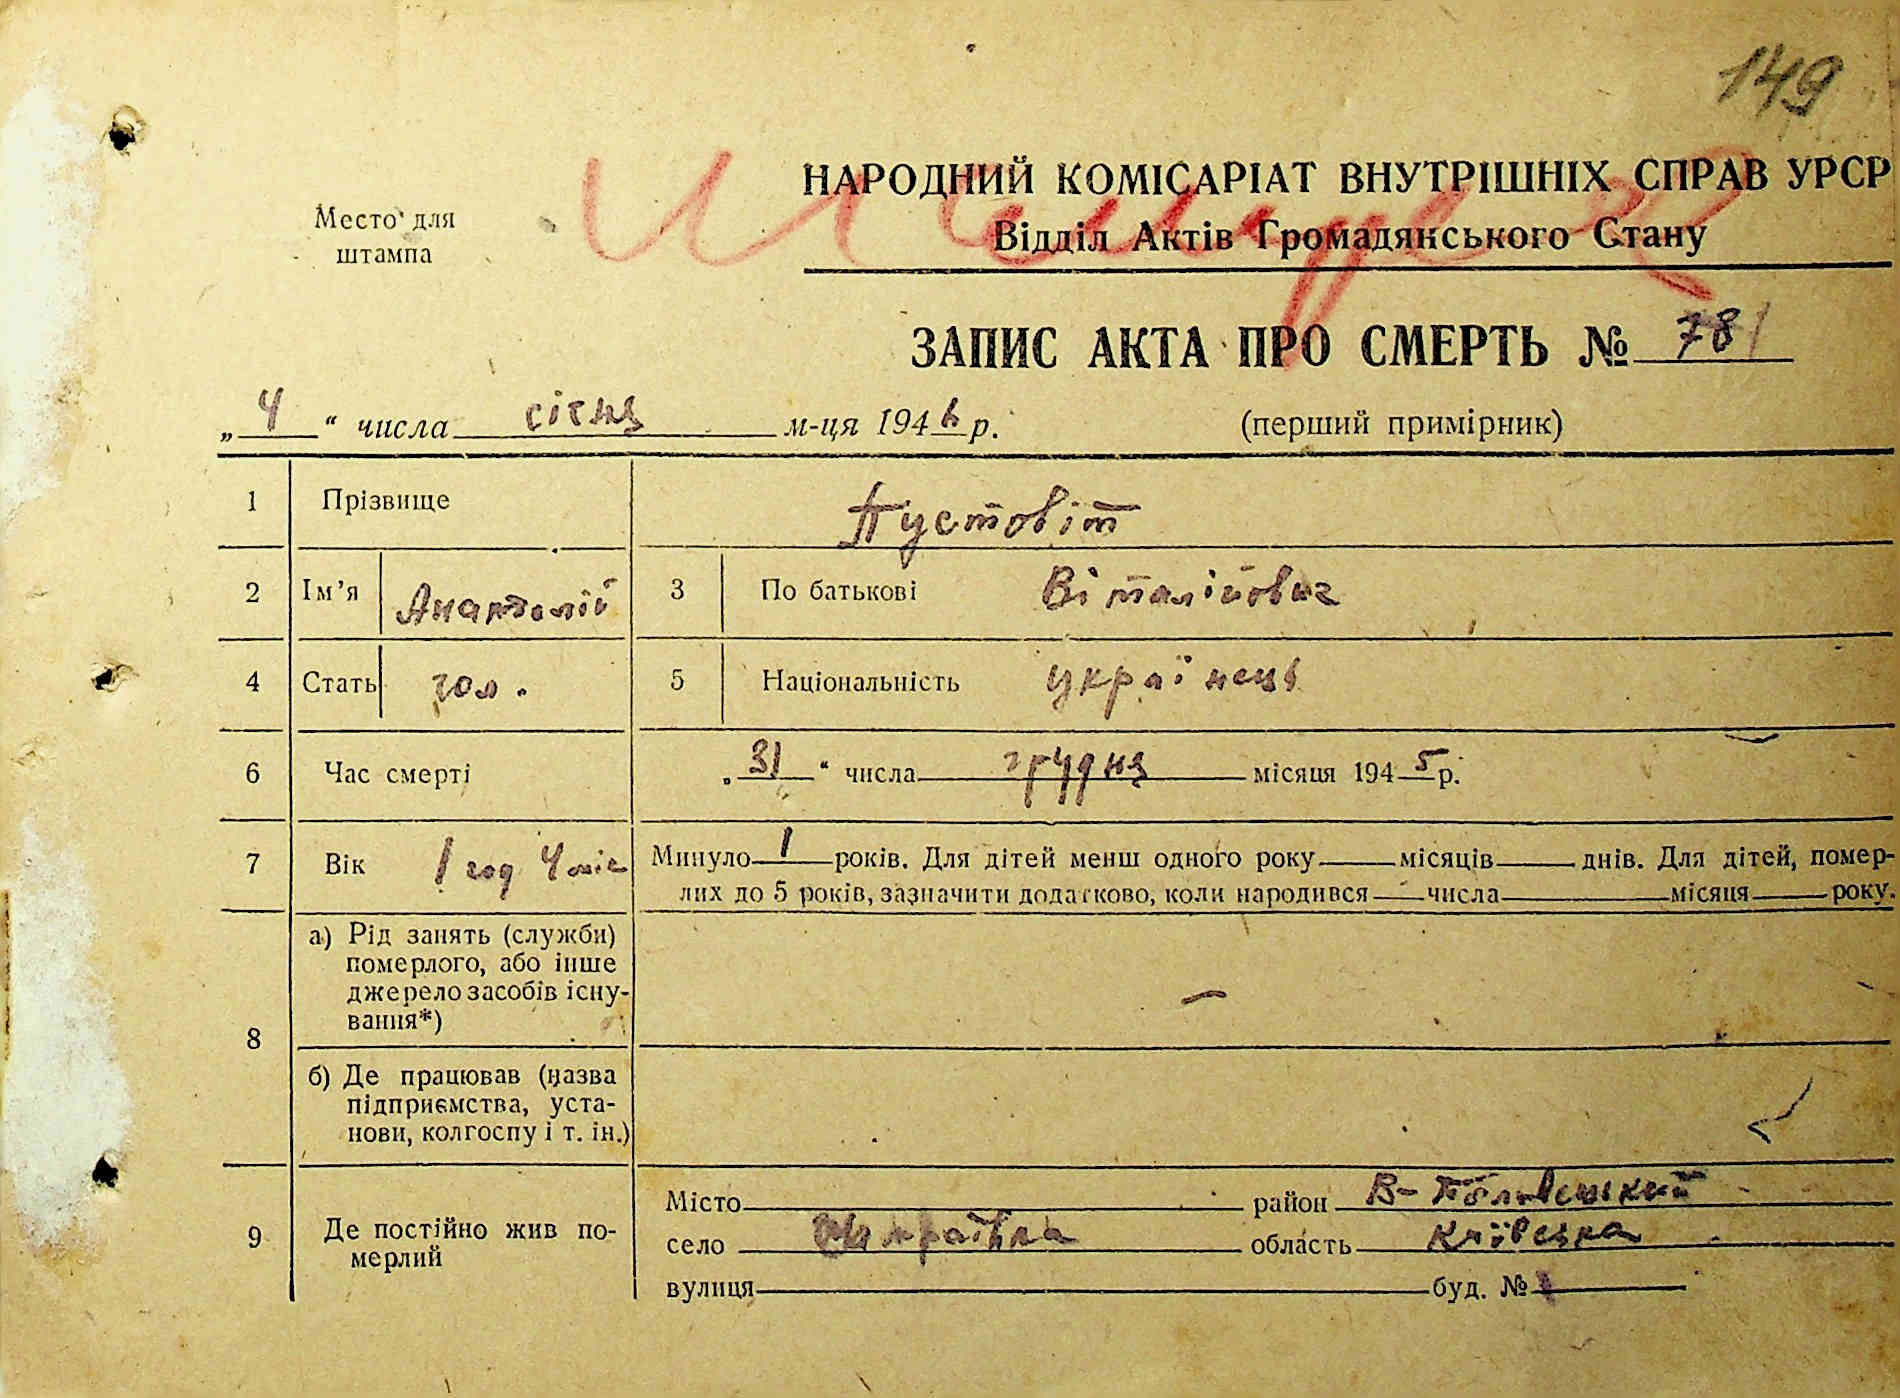 149
НАРОДНИЙ КОМІСАРІАТ ВНУТРІШНІХ СПРАВ УРСР
Место для
штампа
Відділ Актів Громадянського Стану
ЗАПИС АКТА ПРО СМЕРТЬ № 781
„ 4 “ числа січня м-ця 1946 р. (перший примірник)
1 Прізвище Пустовіт
2 Ім’я Анатолій 3 По батькові Віталійович
4 Стать чол. 5 Національність українець
6 Час смерті „ 31 “ числа грудня місяця 1945 р.
7 Вік 1 год 4 міс Минуло 1 років. Для дітей менш одного року місяців днів. Для дітей, помер-
лих до 5 років, зазначити додатково, коли народився числа місяця року.
8 а) Рід занять (служби)
померлого, або інше
джерело засобів існу-
вання*) —
б) Де працював (назва
підприємства, уста-
нови, колгоспу і т. ін.)
9 Де постійно жив по-
мерлий
Місто район В-Половецький
село область Київська
вулиця буд. №